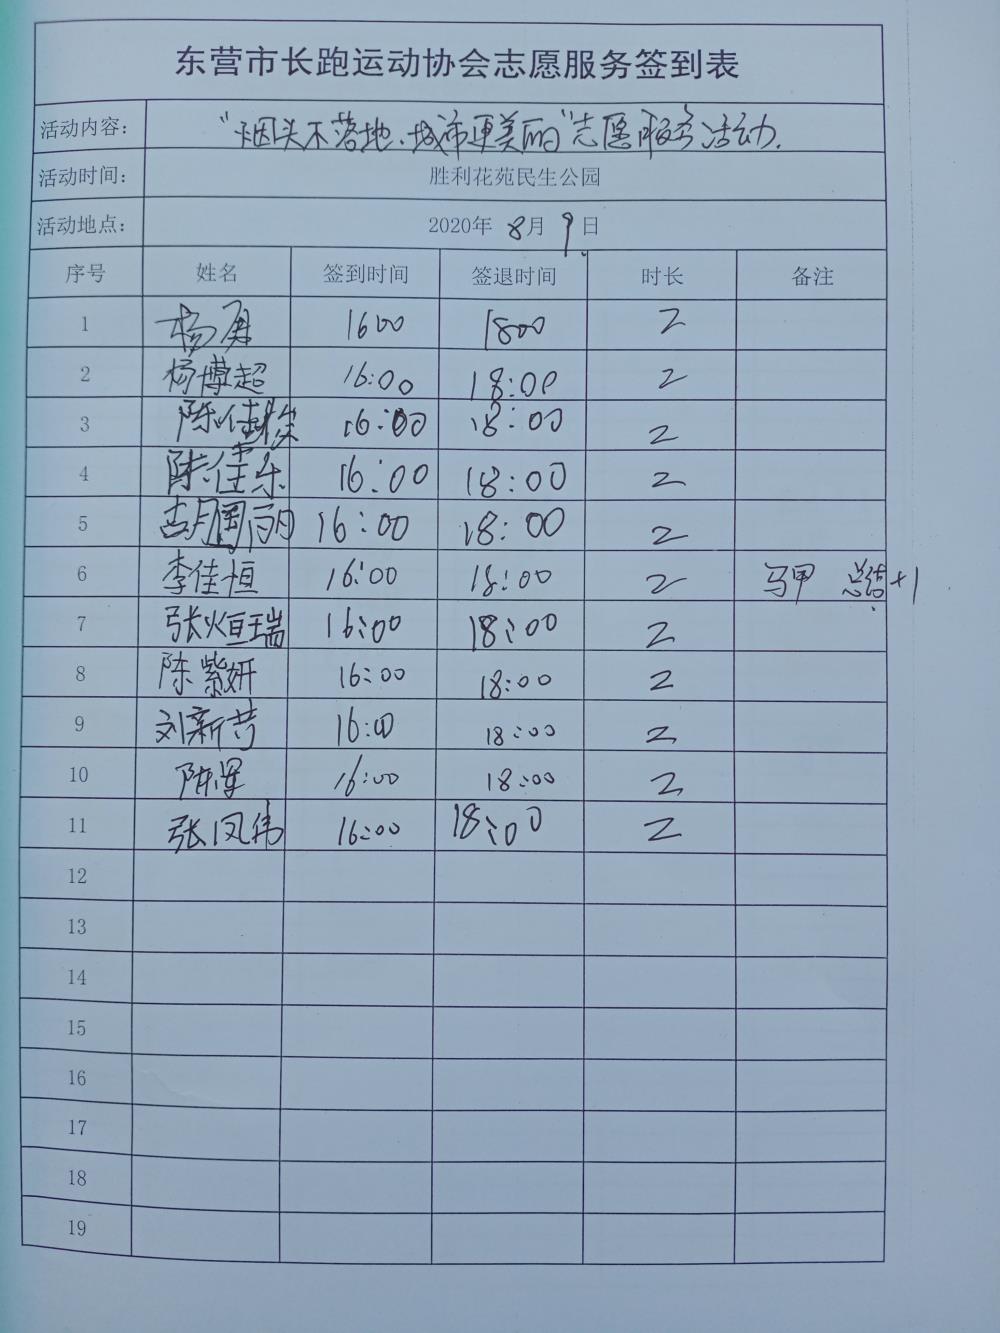 东营市长跑运动协会志愿服务签到表
活动内容： "烟头不落地、城市更美丽"志愿服务活动.
活动时间： 胜利花苑民生公园
活动地点： 2020年 8月 9日
序号 姓名 签到时间 签退时间 时长 备注
1 杨勇 1600 1800 2
2 杨博超 16:00 18:00 2
3 陈佳 16:00 18:00 2
4 陈佳乐 16:00 18:00 2
5 胡国丽 16:00 18:00 2
6 李佳恒 16:00 18:00 2 马甲 总结+1
7 张烜瑞 16:00 18:00 2
8 陈紫妍 16:00 18:00 2
9 刘新芳 16:00 18:00 2
10 陈军 16:00 18:00 2
11 张凤伟 16:00 18:00 2
12
13
14
15
16
17
18
19